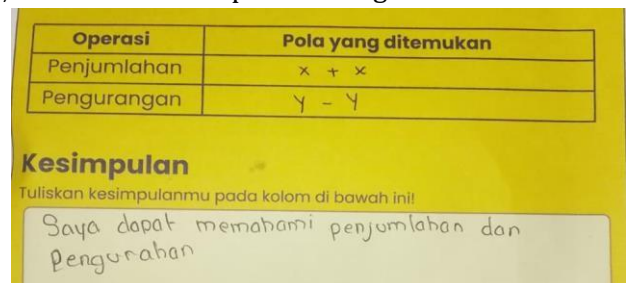 Operasi Pola yang ditemukan
Penjumlahan x + x
Pengurangan y - y
Kesimpulan
Tuliskan kesimpulanmu pada kolom di bawah ini!
Saya dapat memahami penjumlahan dan
Pengurahan